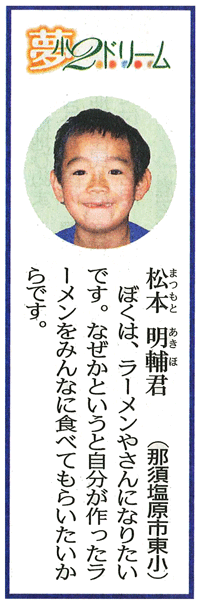 夢小2ドリーム
松本 明輔君
まつもと あきほ
(那須塩原市東小)
ぼくは、ラーメンやさんになりたい
です。なぜかというと自分が作ったラ
ーメンをみんなに食べてもらいたいか
らです。